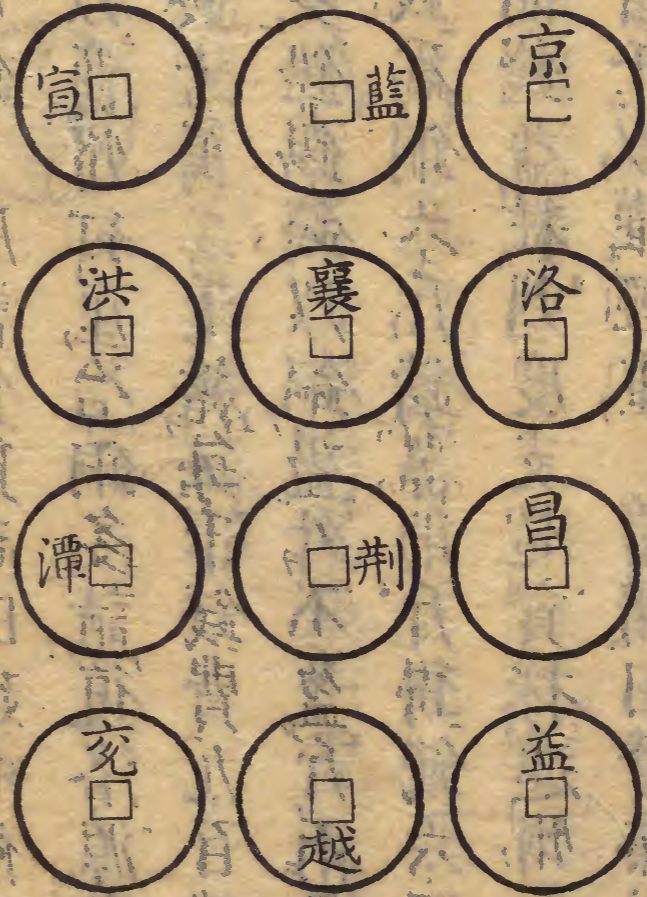 京
藍
宣
洛
襄
洪
昌
荆
潭
益
越
兖